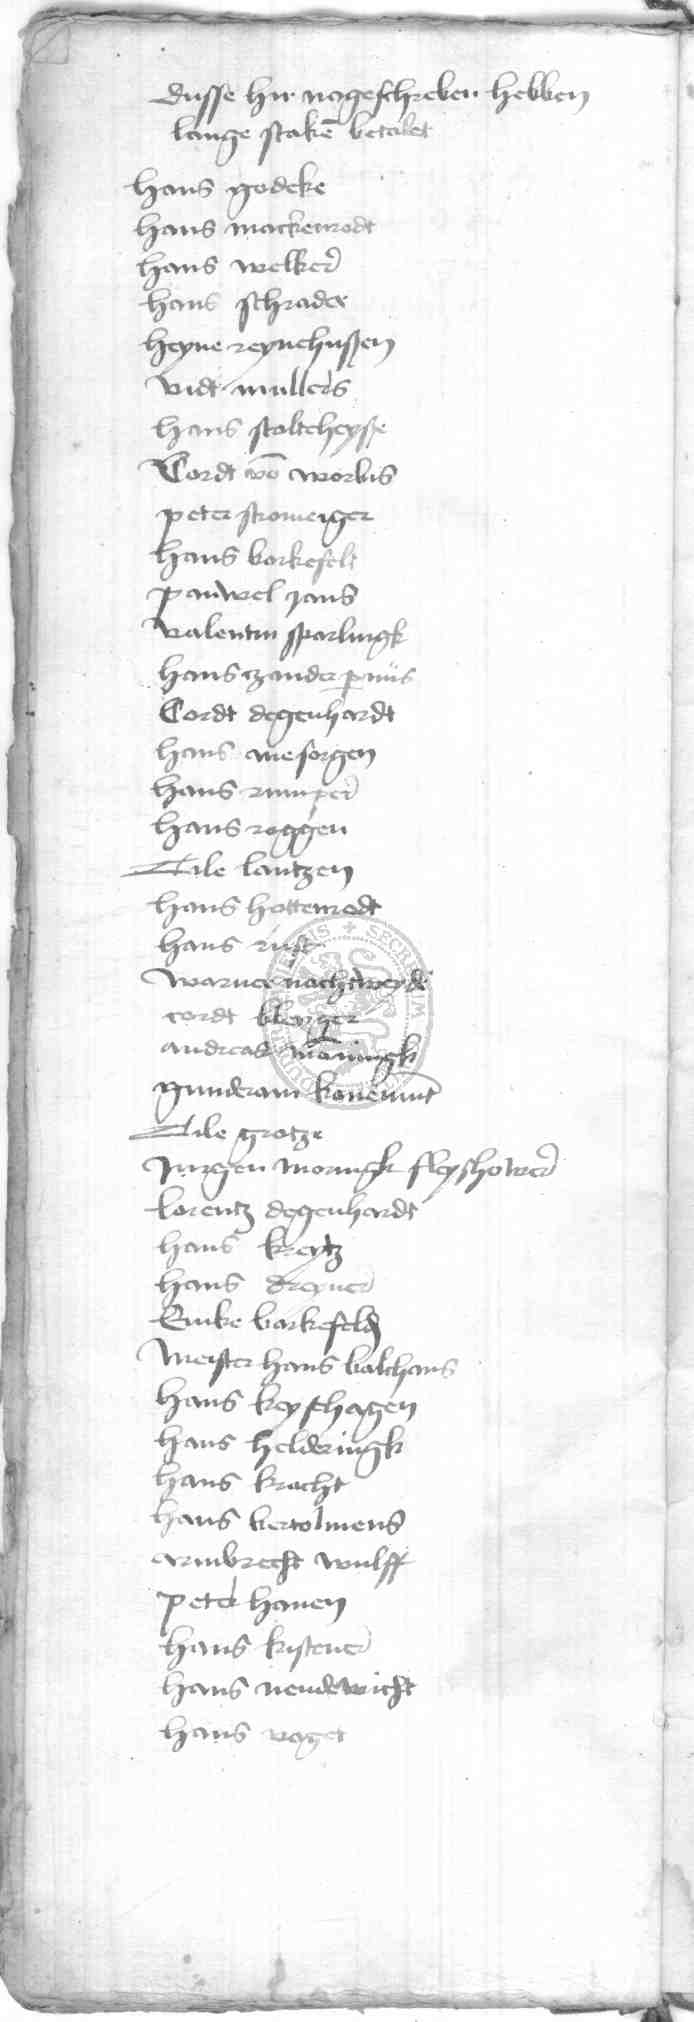 Dusse hir nageschreben hebben
lange staken betalet
hans godeke
hans mackenrodt
hans welker
hans schrader
heyne reynehussen
vidt mullers
hans stoltcheysse
Cordt vo worbis
peter stromeiger
hans borkefelt
pauwel jans
valentin sparlingk
hans czander
Cordt degenhardt
hans anesorgen
hans rumper
hans roggen
Tile lantzen
hans hottenrodt
hans rust
warnce nachtweyde
cordt bleyger
andreas
gunderam konemut
Tile grotze
Jurgen moringk fleyshower
lorentz degenhardt
hans kreytz
hans dreyner
Emke barkefeld
Meister hans balthans
hans keyshagen
hans helderingk
hans kracht
hans bertolmens
armbrecht wulff
peter hanen
hans kistener
hans nendewicht
hans voget
SECRETUM